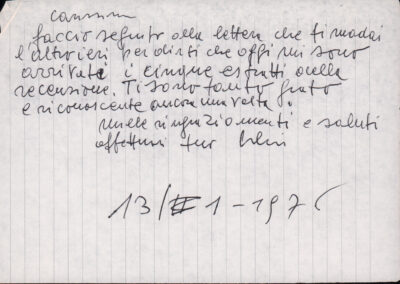 faccio seguito alla lettera che ti madai
l'altro ieri per dirti che oggi mi sono
arrivati i cinque estratti della
recensione. Ti sono tanto grato
e riconoscente ancora una volta.
mille ringraziamenti e saluti
affettuosi tuo
13/1-1976